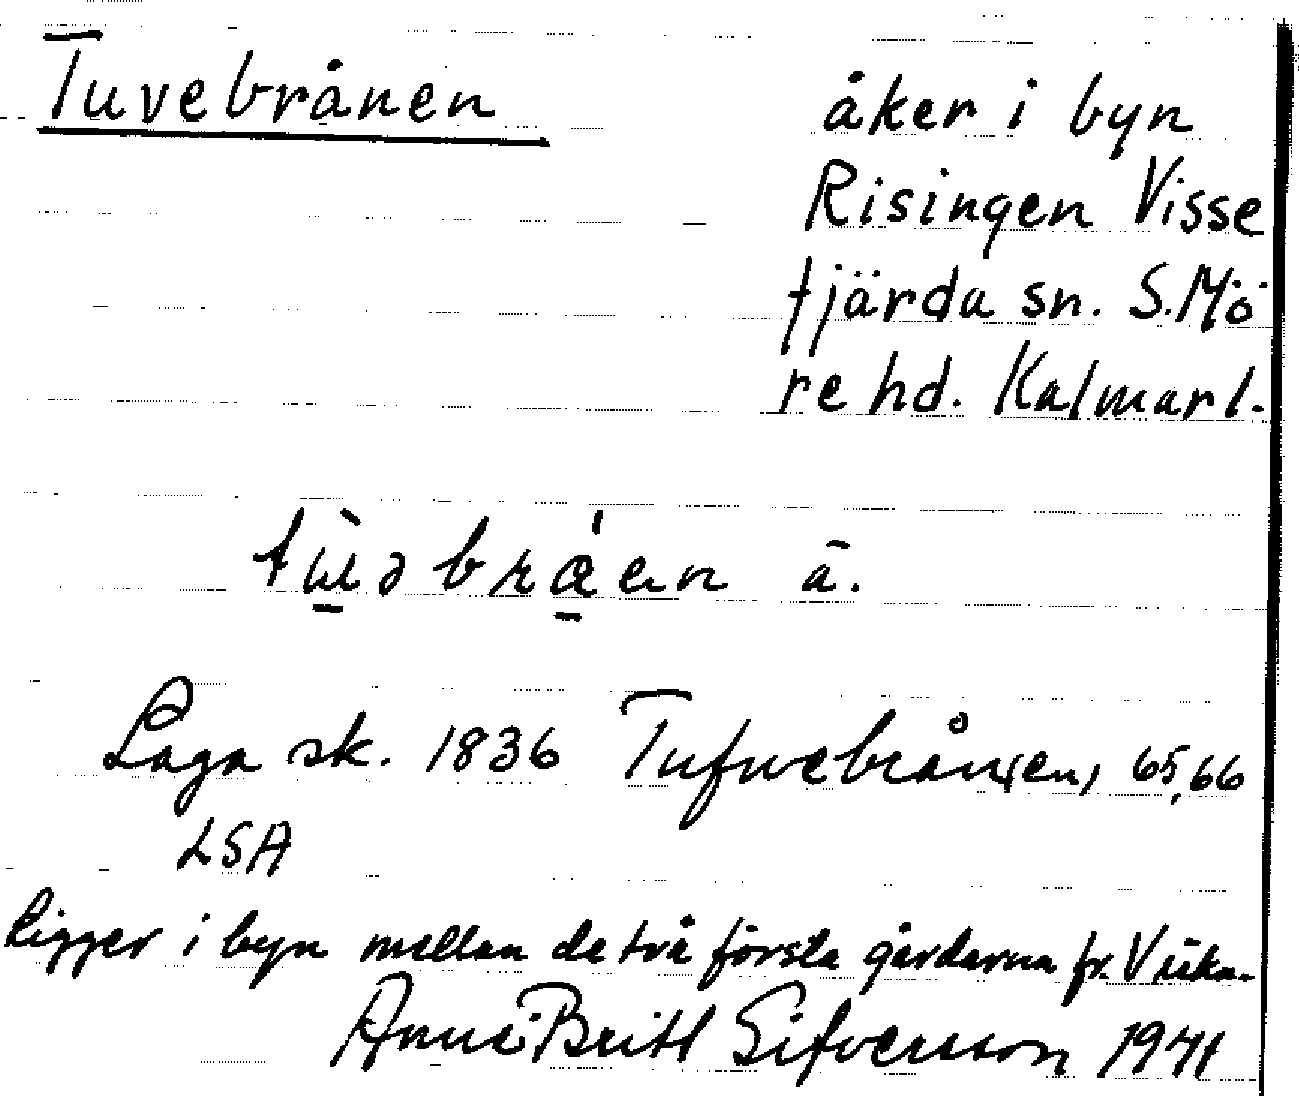 Tuvebrånen
åker i byn
Risingen Visse
fjärda sn. S.Mö
re hd. Kalmarl.
ā.
Laga sk. 1836 Tufvebrån(en) 65,66
LSA
ligger i byn mellan de två första gårdarna fr. V
Anna-Britt Sifversson 1941